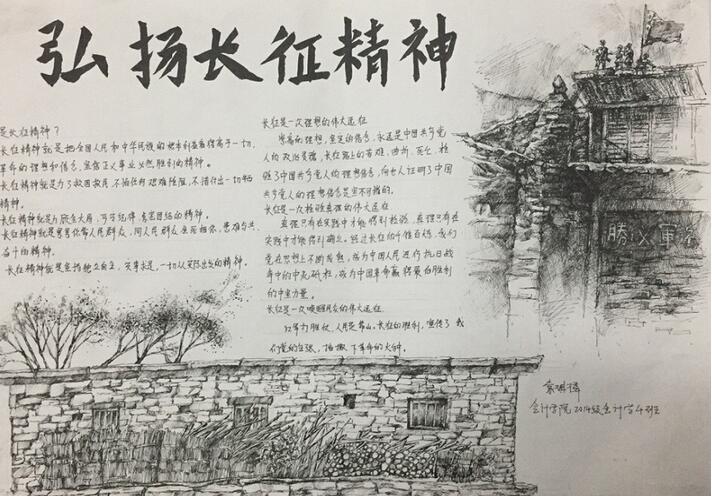 弘扬长征精神
是长征精神？
长征精神就是把全国人民和中华民族的根本利益看得高于一切，
革命的理想和信念，坚信正义事业必然胜利的精神。
长征精神就是为了救国救民，不怕任何艰难险阻，不惜付出一切牺牲
精神。
长征精神就是顾全大局，严守纪律，紧密团结的精神。
长征精神就是紧紧依靠人民群众，同人民群众生死相依，患难与共，
奋斗的精神。
长征精神就是坚持独立自主，实事求是，一切从实际出发的精神。
长征是一次理想的伟大远征
崇高的理想，坚定的信念，永远是中国共产党
人的政治灵魂，长征路上的苦难，曲折，死亡，检
验了中国共产党人的理想信念，向世人证明了中国
共产党人的理想信念是坚不可摧的。
长征是一次检验真理的伟大远征
真理只有在实践中才能得到检验，真理只有在
实践中才能得到确立。经过长征的千锤百炼，我们
党在思想上不断成熟，成为中国人民进行抗日战
争的中流砥柱，成为中国革命赢得最后胜利
的中坚力量。
长征是一次唤醒民众的伟大远征
红军打胜仗，人民是靠山。长征的胜利，宣传了我
们党的主张，播撒下革命的火种。
勝 軍
会计学院 2014级会计学4班